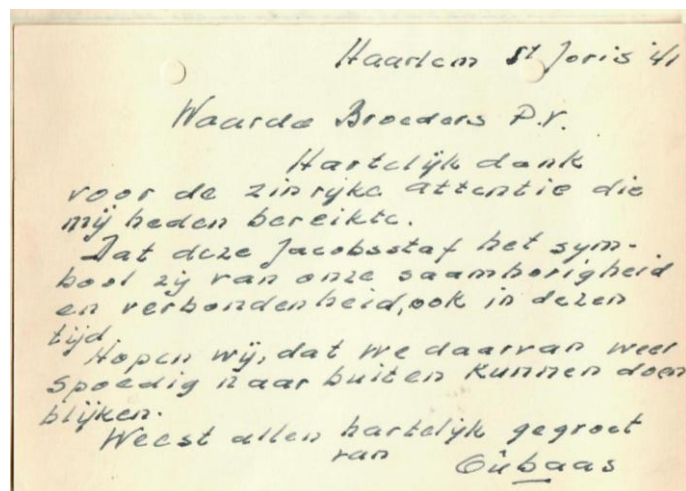 Haarlem St Joris '41
Waarde Broeders P.V.
Hartelijk dank
voor de zinrijke attentie die
mij heden bereikte.
Dat deze Jacobsstaf het sym-
bool zij van onze saamhorigheid
en verbondenheid, ook in dezen
tijd.
Hopen wij, dat we daarvan weer
spoedig naar buiten kunnen doen
blijken.
Weest allen hartelijk gegroet
van Oûbaas